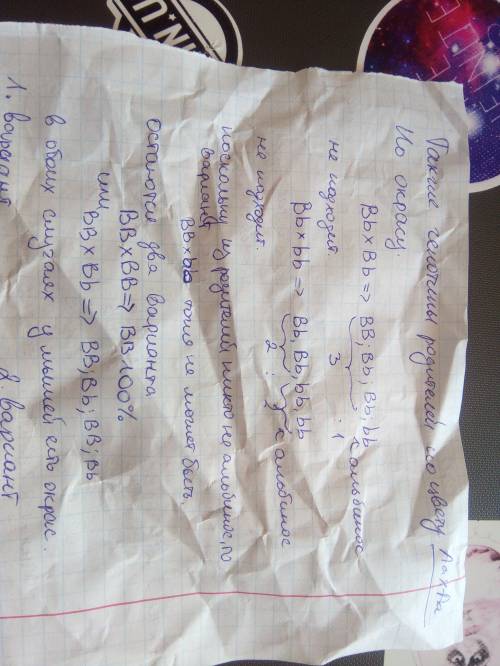 Такие генотипы родителей по цвету Аа х Аа
Но окрасу.
Bb × Bb => BB; Bb; Bb; bb
3 : 1 альбинос
не подходит.
Bb × bb => Bb, Bb; bb; bb
2 : 2 альбинос
не подходит.
поскольку из родителей никто не альбинос, то
вариант BB×bb тоже не может быть.
остаются два варианта
BB×BB => BB 100%
или BB×Bb => BB; Bb; BB; Bb
в обоих случаях у мышей есть окрас.
1. вариант 2. вариант